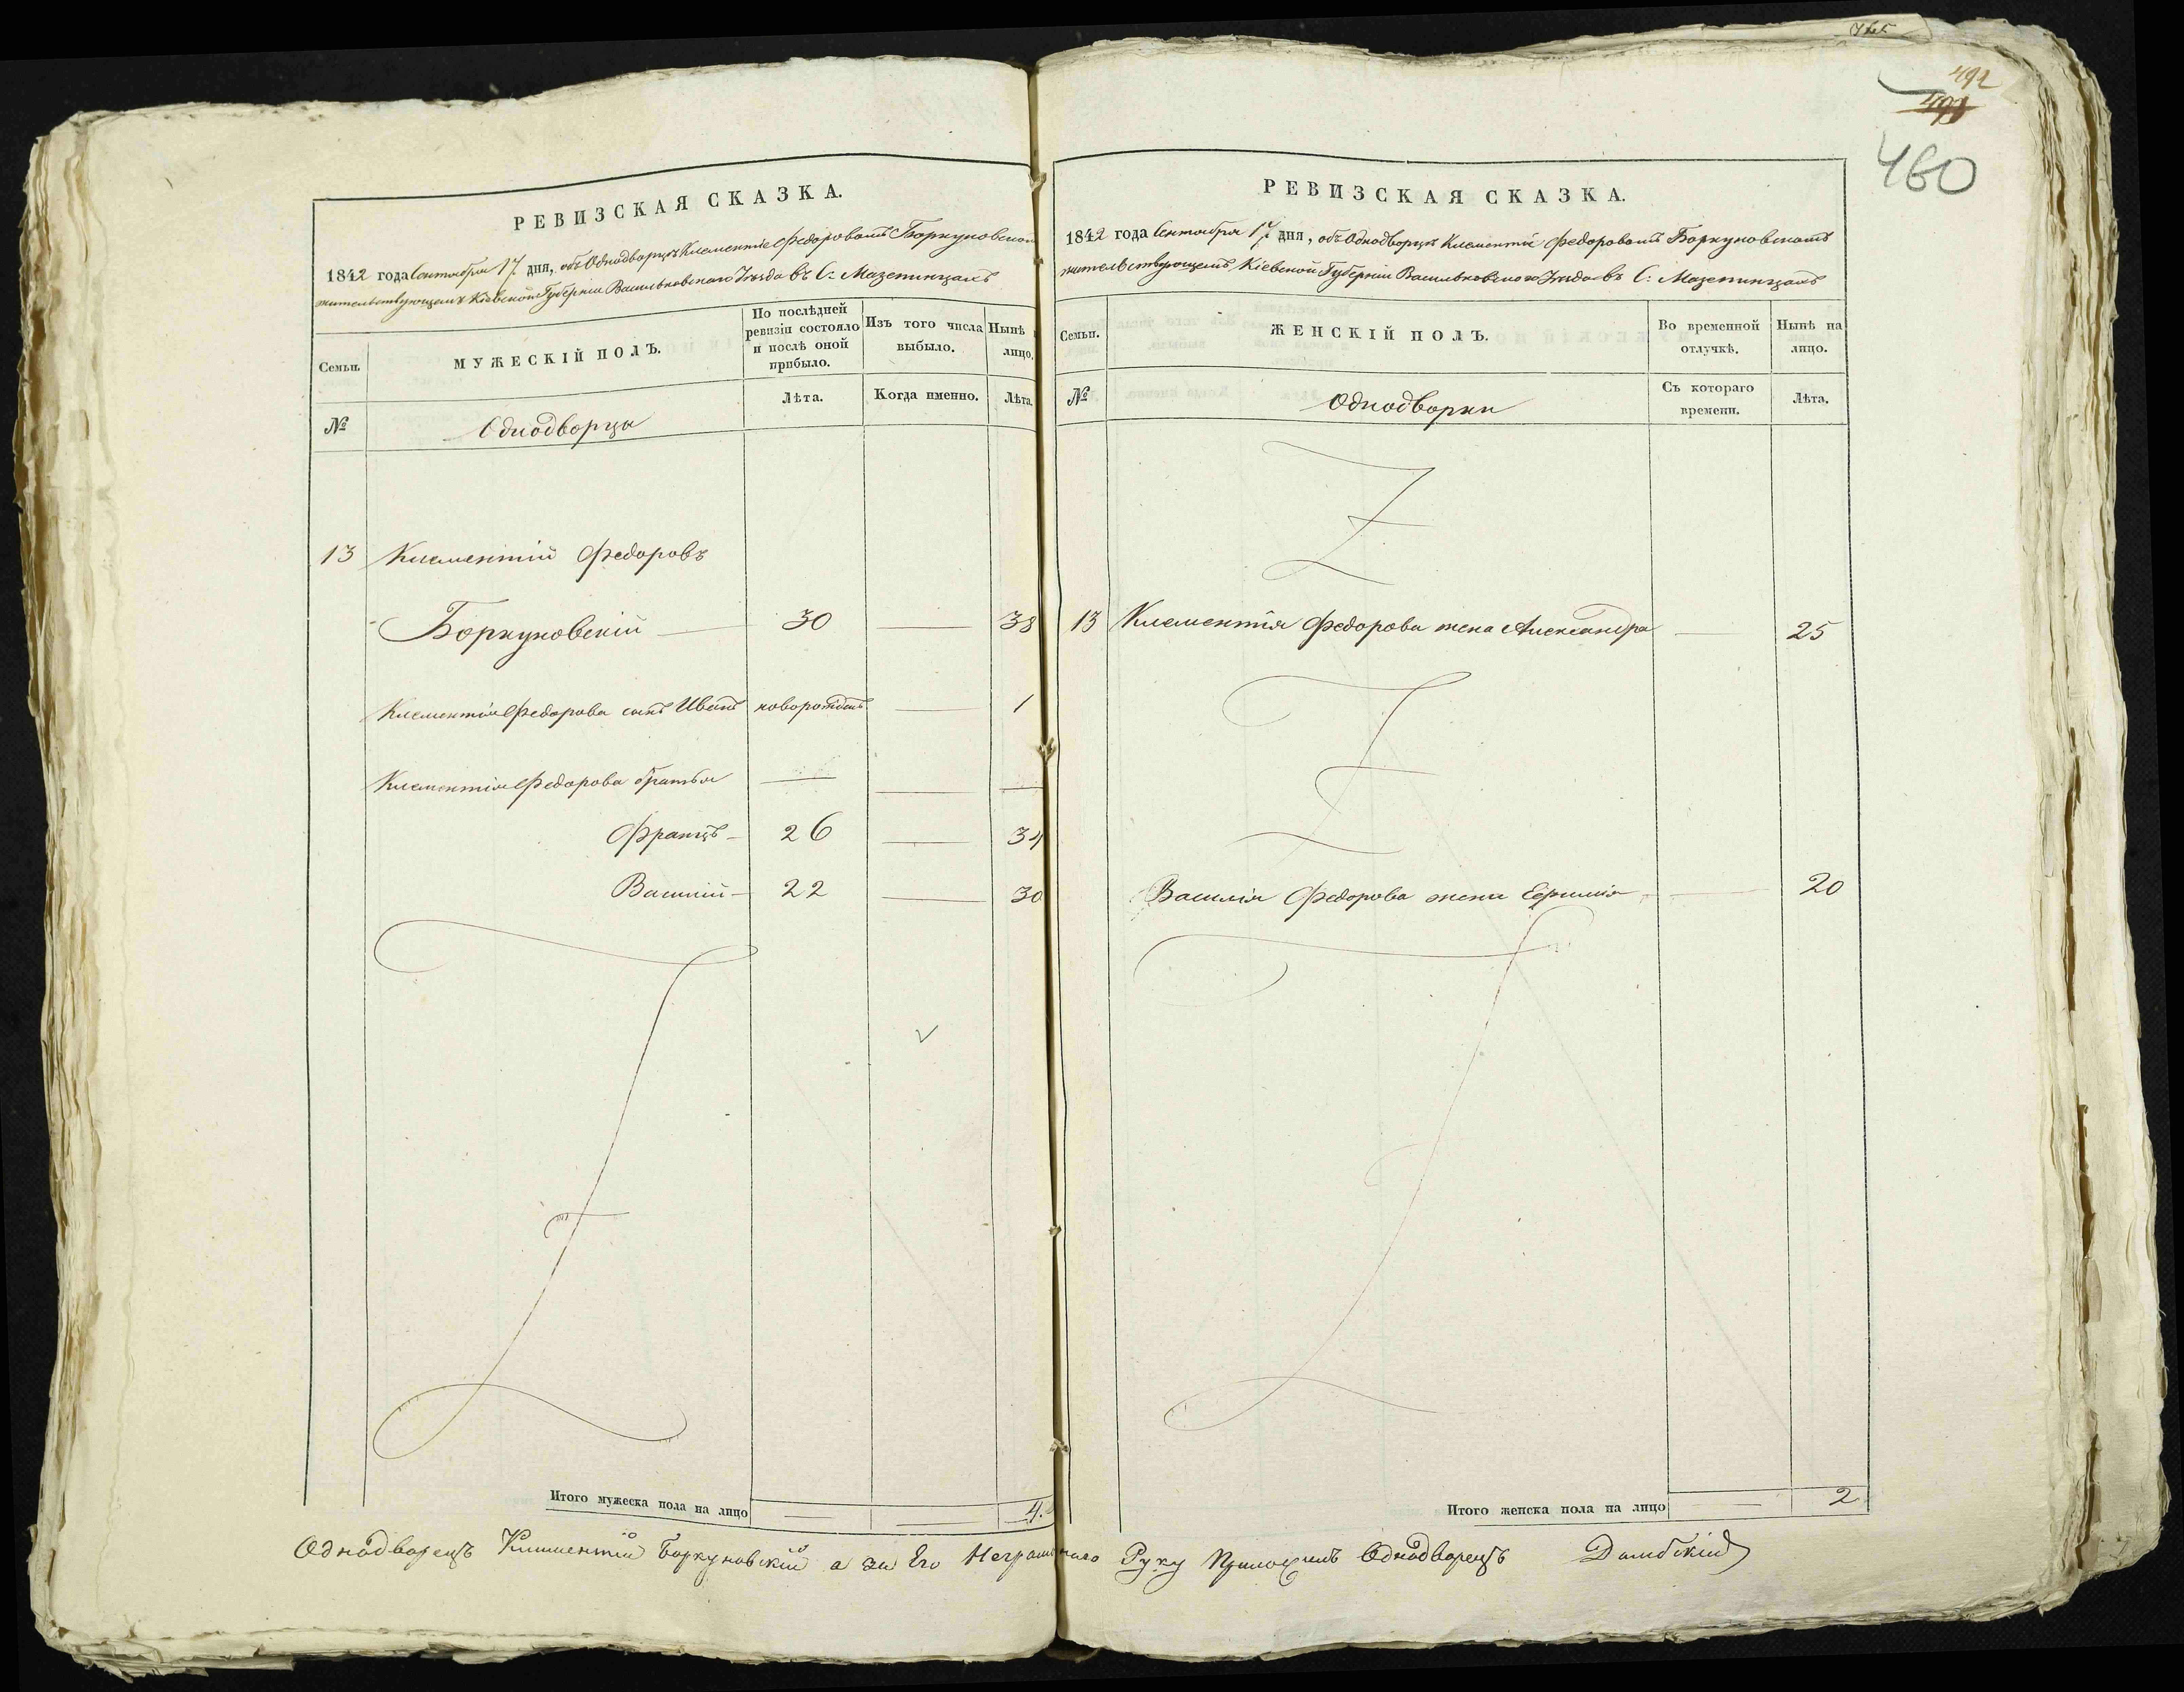 492
460
РЕВИЗСКАЯ СКАЗКА.
1842 года Сентября 17 дня, объ Однодворцѣ Клементіе Федоровомъ Боркуновском
жительствующемъ Кіевской Губерніи Васильковскаго Уѣзда въ С: Мазепинцахъ
Семьи.
МУЖЕСКІЙ ПОЛЪ.
По послѣдней ревизіи состояло и послѣ оной прибыло.
Изъ того числа выбыло.
Нынѣ лицо.
№
Однодворцы
Лѣта.
Когда именно.
Лѣта.
13 Клементій Федоровъ
Боркуновскій 30 38
Клементія Федорова сынъ Иванъ новорожденъ 1
Клементія Федорова братья
Францъ 26 34
Василій 22 30
Итого мужеска пола на лицо 4.
РЕВИЗСКАЯ СКАЗКА.
1842 года Сентября 17 дня, объ Однодворцѣ Клементіи Федоровомъ Боркуновскомъ
жительствующемъ Кіевской Губерніи Васильковскаго Уѣзда въ С: Мазепинцахъ
Семьи.
ЖЕНСКІЙ ПОЛЪ.
Во временной отлучкѣ.
Нынѣ на лицо.
№
Однодворки
Съ котораго времени.
Лѣта.
13 Клементія Федорова жена Александра 25
Василія Федорова жена Ефимія 20
Итого женска пола на лицо 2
Однодворецъ Климентій Боркуновскій а за Его Неграмотнаго Руку Приложилъ Однодворецъ Домбскій